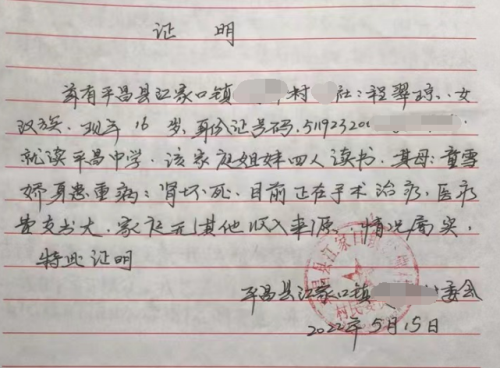 证 明
兹有平昌县江家口镇 村 社:程翠琼,女
汉族,现年16岁,身份证号码:51192320
就读平昌中学。该家庭姐妹四人读书,其母:童雪
娇身患重病:肾坏死,目前正在手术治疗,医疗
费支出大,家庭无其他收入来源,情况属实,
特此证明
平昌县江家口镇 委会
2022年5月15日